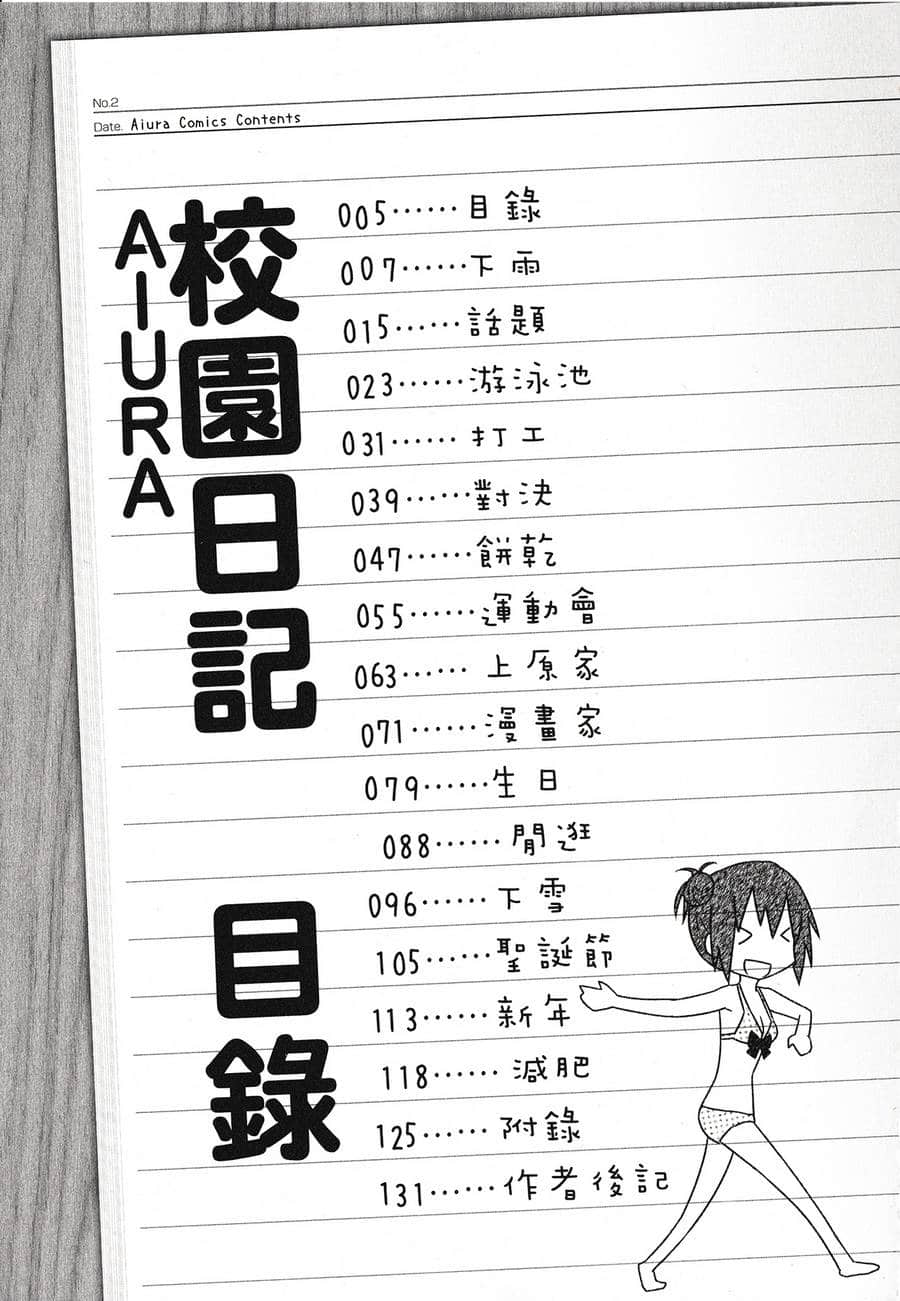 No.2
Date. Aiura Comics Contents
校園日記
AIURA
目錄
005⋯⋯目錄
007⋯⋯下雨
015⋯⋯話題
023⋯⋯游泳池
031⋯⋯打工
039⋯⋯對決
047⋯⋯餅乾
055⋯⋯運動會
063⋯⋯上原家
071⋯⋯漫畫家
079⋯⋯生日
088⋯⋯閒逛
096⋯⋯下雪
105⋯⋯聖誕節
113⋯⋯新年
118⋯⋯減肥
125⋯⋯附錄
131⋯⋯作者後記